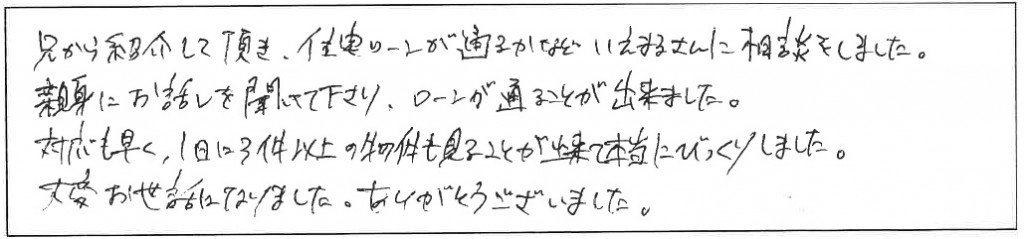 兄から紹介して頂き、住宅ローンが通るかなどいえまるさんに相談をしました。
親身にお話しを聞いて下さり、ローンが通ることが出来ました。
対応も早く、1日に3件以上の物件も見ることが出来て本当にびっくりしました。
大変お世話になりました。ありがとうございました。